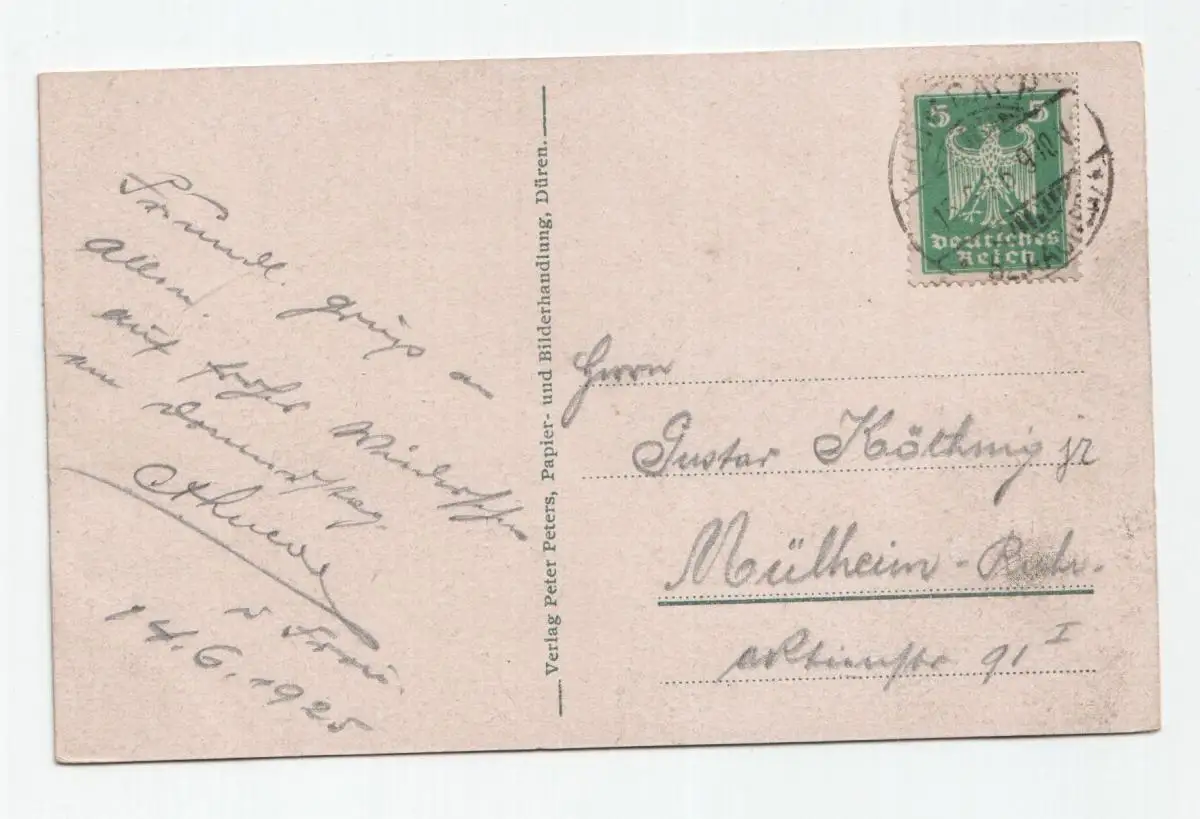 Freundl. Grüße an
Allen.
auf frohes Wiedersehen
am Donnerstag.
u Frau.
14.6.1925
Verlag Peter Peters, Papier- und Bilderhandlung, Düren.
5 5
Deutsches
Reich
Herrn
Gustav Költhnig jr
Mülheim-Ruhr.
aktienstr 91 I